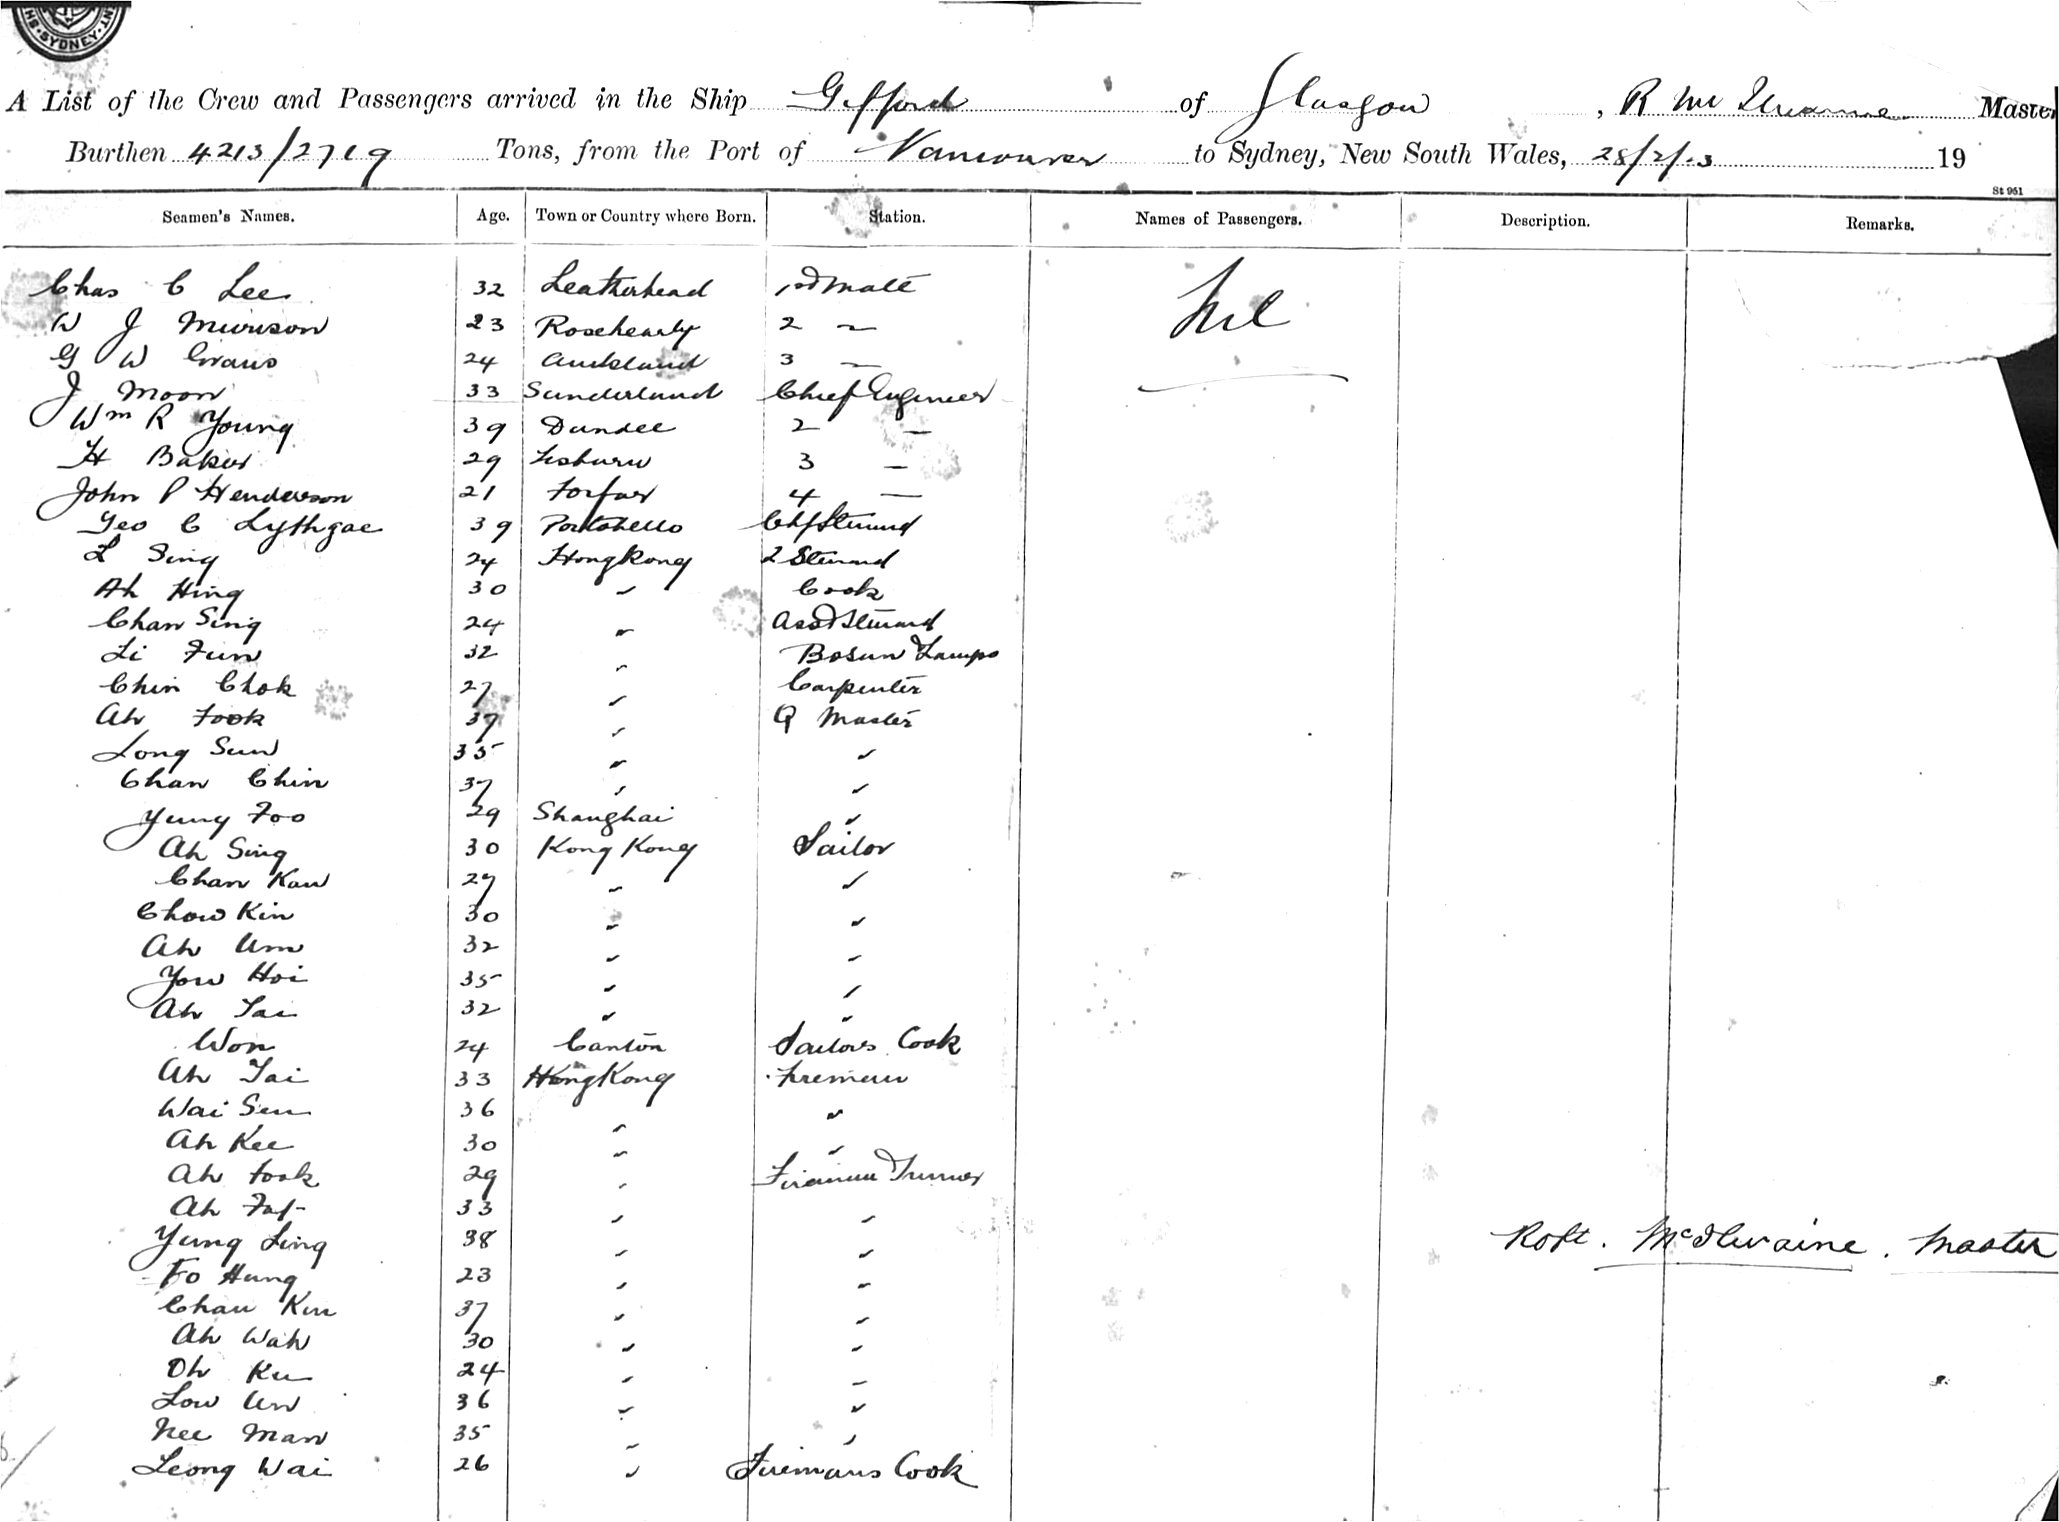 SYDNEY
A List of the Crew and Passengers arrived in the Ship Gifford of Glasgow, R McIlwaine Master
Burthen 4213/2719 Tons, from the Port of Vancouver to Sydney, New South Wales, 28/2/.3 19
St 961
Seamen's Names. Age. Town or Country where Born. Station. Names of Passengers. Description. Remarks.
Chas C Lee 32 Leatherhead 1st Mate Nil
W J Murison 23 Rosehearty 2 —
G W Evans 24 Auckland 3 —
J Moon 33 Sunderland Chief Engineer
Wm R Young 39 Dundee 2 —
H Baker 29 Lisburn 3 —
John P Henderson 21 Forfar 4 —
Geo C Lythgoe 39 Portobello Chf Steward
L Sing 24 Hongkong 2 Steward
Ah Hing 30 " Cook
Chan Sing 24 " Asst Steward
Li Fun 32 " Bosun & Lamps
Chin Chok 27 " Carpenter
Ah Fook 37 " Q Master
Long Sun 35 " "
Chan Chin 37 " "
Yung Foo 29 Shanghai "
Ah Sing 30 Kong Kong Sailor
Chan Kau 27 " "
Chow Kin 30 " "
Ah Um 32 " "
Yow Hoi 35 " "
Ah Tai 32 " "
Won 24 Canton Sailors Cook
Ah Tai 33 HongKong Fireman
Wai Sun 36 " "
Ah Kee 30 " "
Ah Fook 29 " Fireman & Trimmer
Ah Fat 33 " "
Yung Ling 38 " "
Robt. McIlwaine. Master
Fo Hung 23 " "
Chan Kin 37 " "
Ah Wah 30 " "
Oh Ku 24 " "
Low Un 36 " "
Nee Man 35 " "
Leong Wai 26 " Firemans Cook